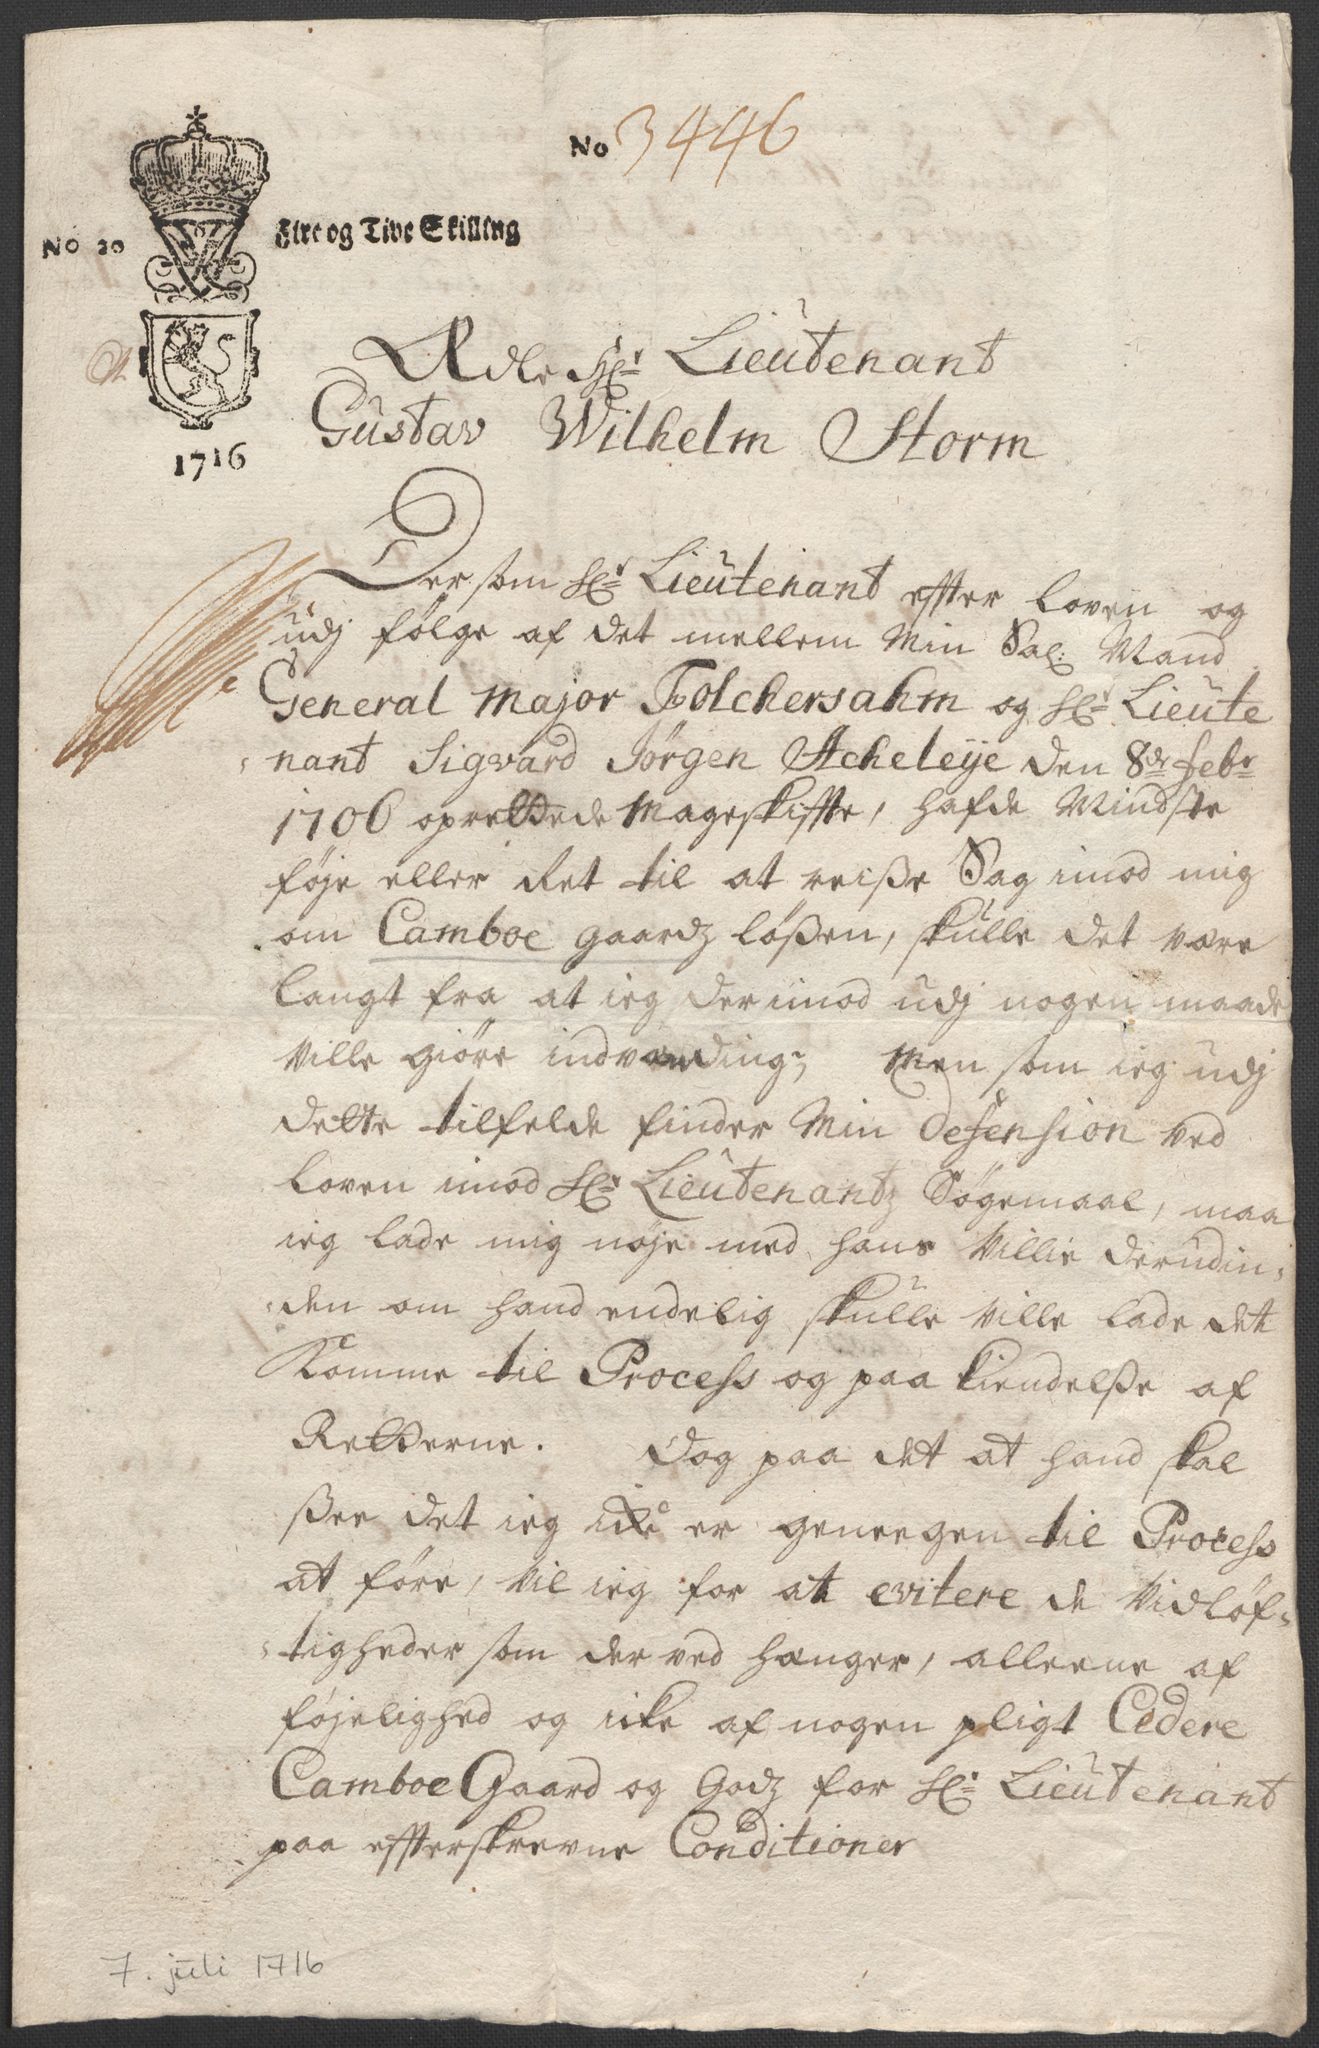 No 3446
No 20
Fire og Tive Skilling
1716
Ædle Hr Lieutenant
Gustav Wilhelm Storm
Dersom Hr Lieutenant effter loven og
udj følge af det mellem Min Sal: Mand
General Major Folchersahm og Hr Lieute
nant Sigvard Jørgen Acheleÿe den 8de Febr
1706 oprettede Mageskiffte, hafde Mindste
føje eller Ret til at reiße Sag imod mig
om Camboe gaardz lößen, skulle det være
langt fra at ieg derimod udj nogen maade
Ville giöre indvending; Men som ieg udj
dette tilfelde finder Min defension ved
loven imod Hr Lieutenantz Søgemaal, maa
ieg lade mig nøje med hans Villie derudin-
den om hand endelig skulle Ville lade det
Komme til Process og paa kiendelße af
Retterne. Dog paa det at hand skal
ßee det ieg icke er geneegen til Process
at føre, Vil ieg for at evitere de Vidløf-
tigheder som der ved hænger, alleene af
føjelighed og icke af nogen pligt Cedere
Camboe Gaard og Godz for Hr Lieutenant
paa effterskrevne Conditioner
7. juli 1716